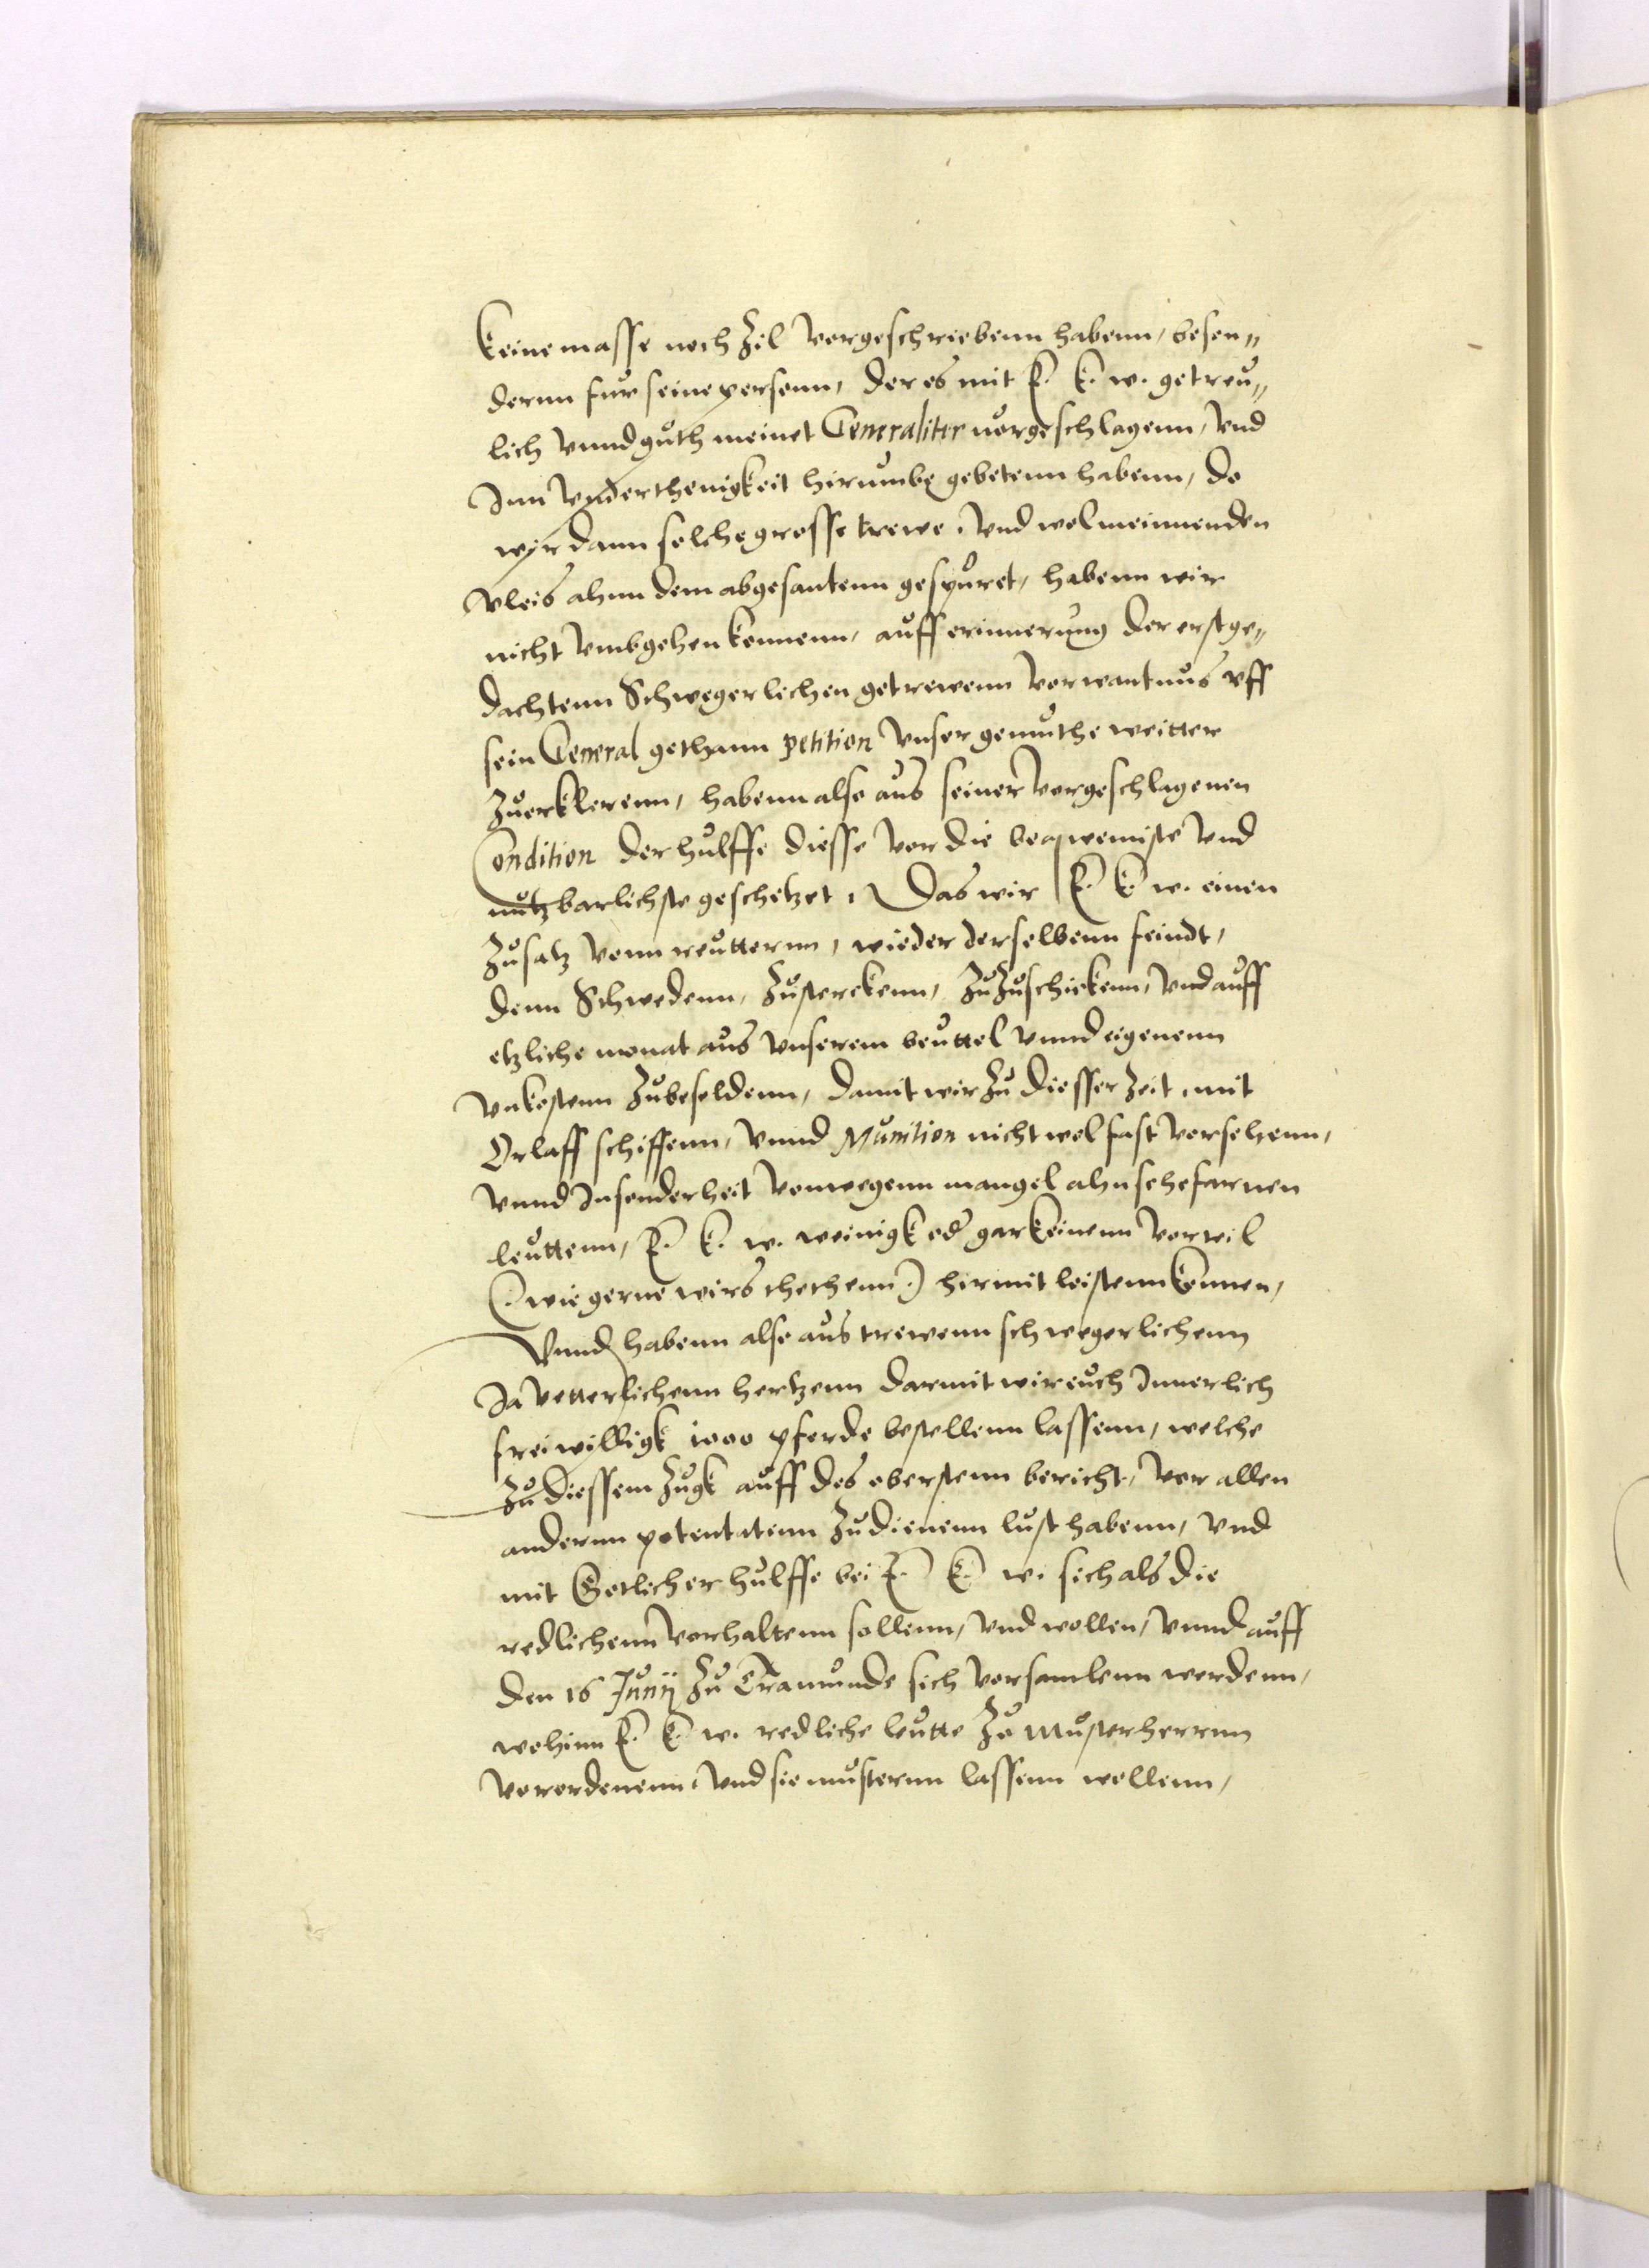 keine masse noch Zil vorgeschriebenn habenn, beson„
dernn fur seine personn, der es mit E. k. w. getreu„
lich vnnd guth meinet Generaliter vorgeschlagenn, vnd
Inn vnderthenigkeit hirumbe gebetenn habenn, do
wyr dann solche grosse trewe, vnd wolmeinnenden
vleis ahnn dem abgesantenn gespuret, habenn wir
nicht vmbgehen konnenn, auff erinnerung der erstge„
dachtenn Schwegerlichen getrewenn vorwantnus vff
sein General gethann petition vnser gemuthe weitter
Zuerklerenn, habenn also aus seiner vorgeschlagenen
Condition der hulffe diesse vor die beqwemiste vnd
nutzbarlichste geschetzet, Das wir E. k. w. einen
Zusatz vonn reutternn, wieder derselbenn feindt,
denn Schwedenn, Zusterckenn, ZuZuschickenn, vnd auff
etzliche monat aus vnserem beuttel vnnd eigenenn
vnkostenn Zubesoldenn, damit wir Zu diesser Zeit, mit
Orlaff schiffenn, vnnd Munition nicht wol fast vorsehenn,
vnnd Insonderheit vonwegenn mangel ahn sehefarnen
leuttenn, E. k. w. weinigk oder gar keinenn vorteil
(: wie gerne wirs thethenn :) hirmit leistenn konnen,
Vnnd habenn also aus trewenn schwegerlichenn
Ja vetterlichenn hertzenn darmit wir euch Innerlich
freiwilligk 1000 pferde bestellenn lassenn, welche
Zu diessem Zugk auff des oberstenn bericht, vor allen
andernn potentatenn Zu dienenn lust habenn, vnd
mit Gotlicher hulffe bei E. k. w. sich als die
redlichenn vorhaltenn sollenn, vnd wollen, vnnd auff
den 16 Junij Zu Tramunde sich vorsamlenn werdenn,
wohinn E. k. w. redliche leutte Zu Musterherrnn
vorordenenn, vnd sie musternn lassenn wollenn,